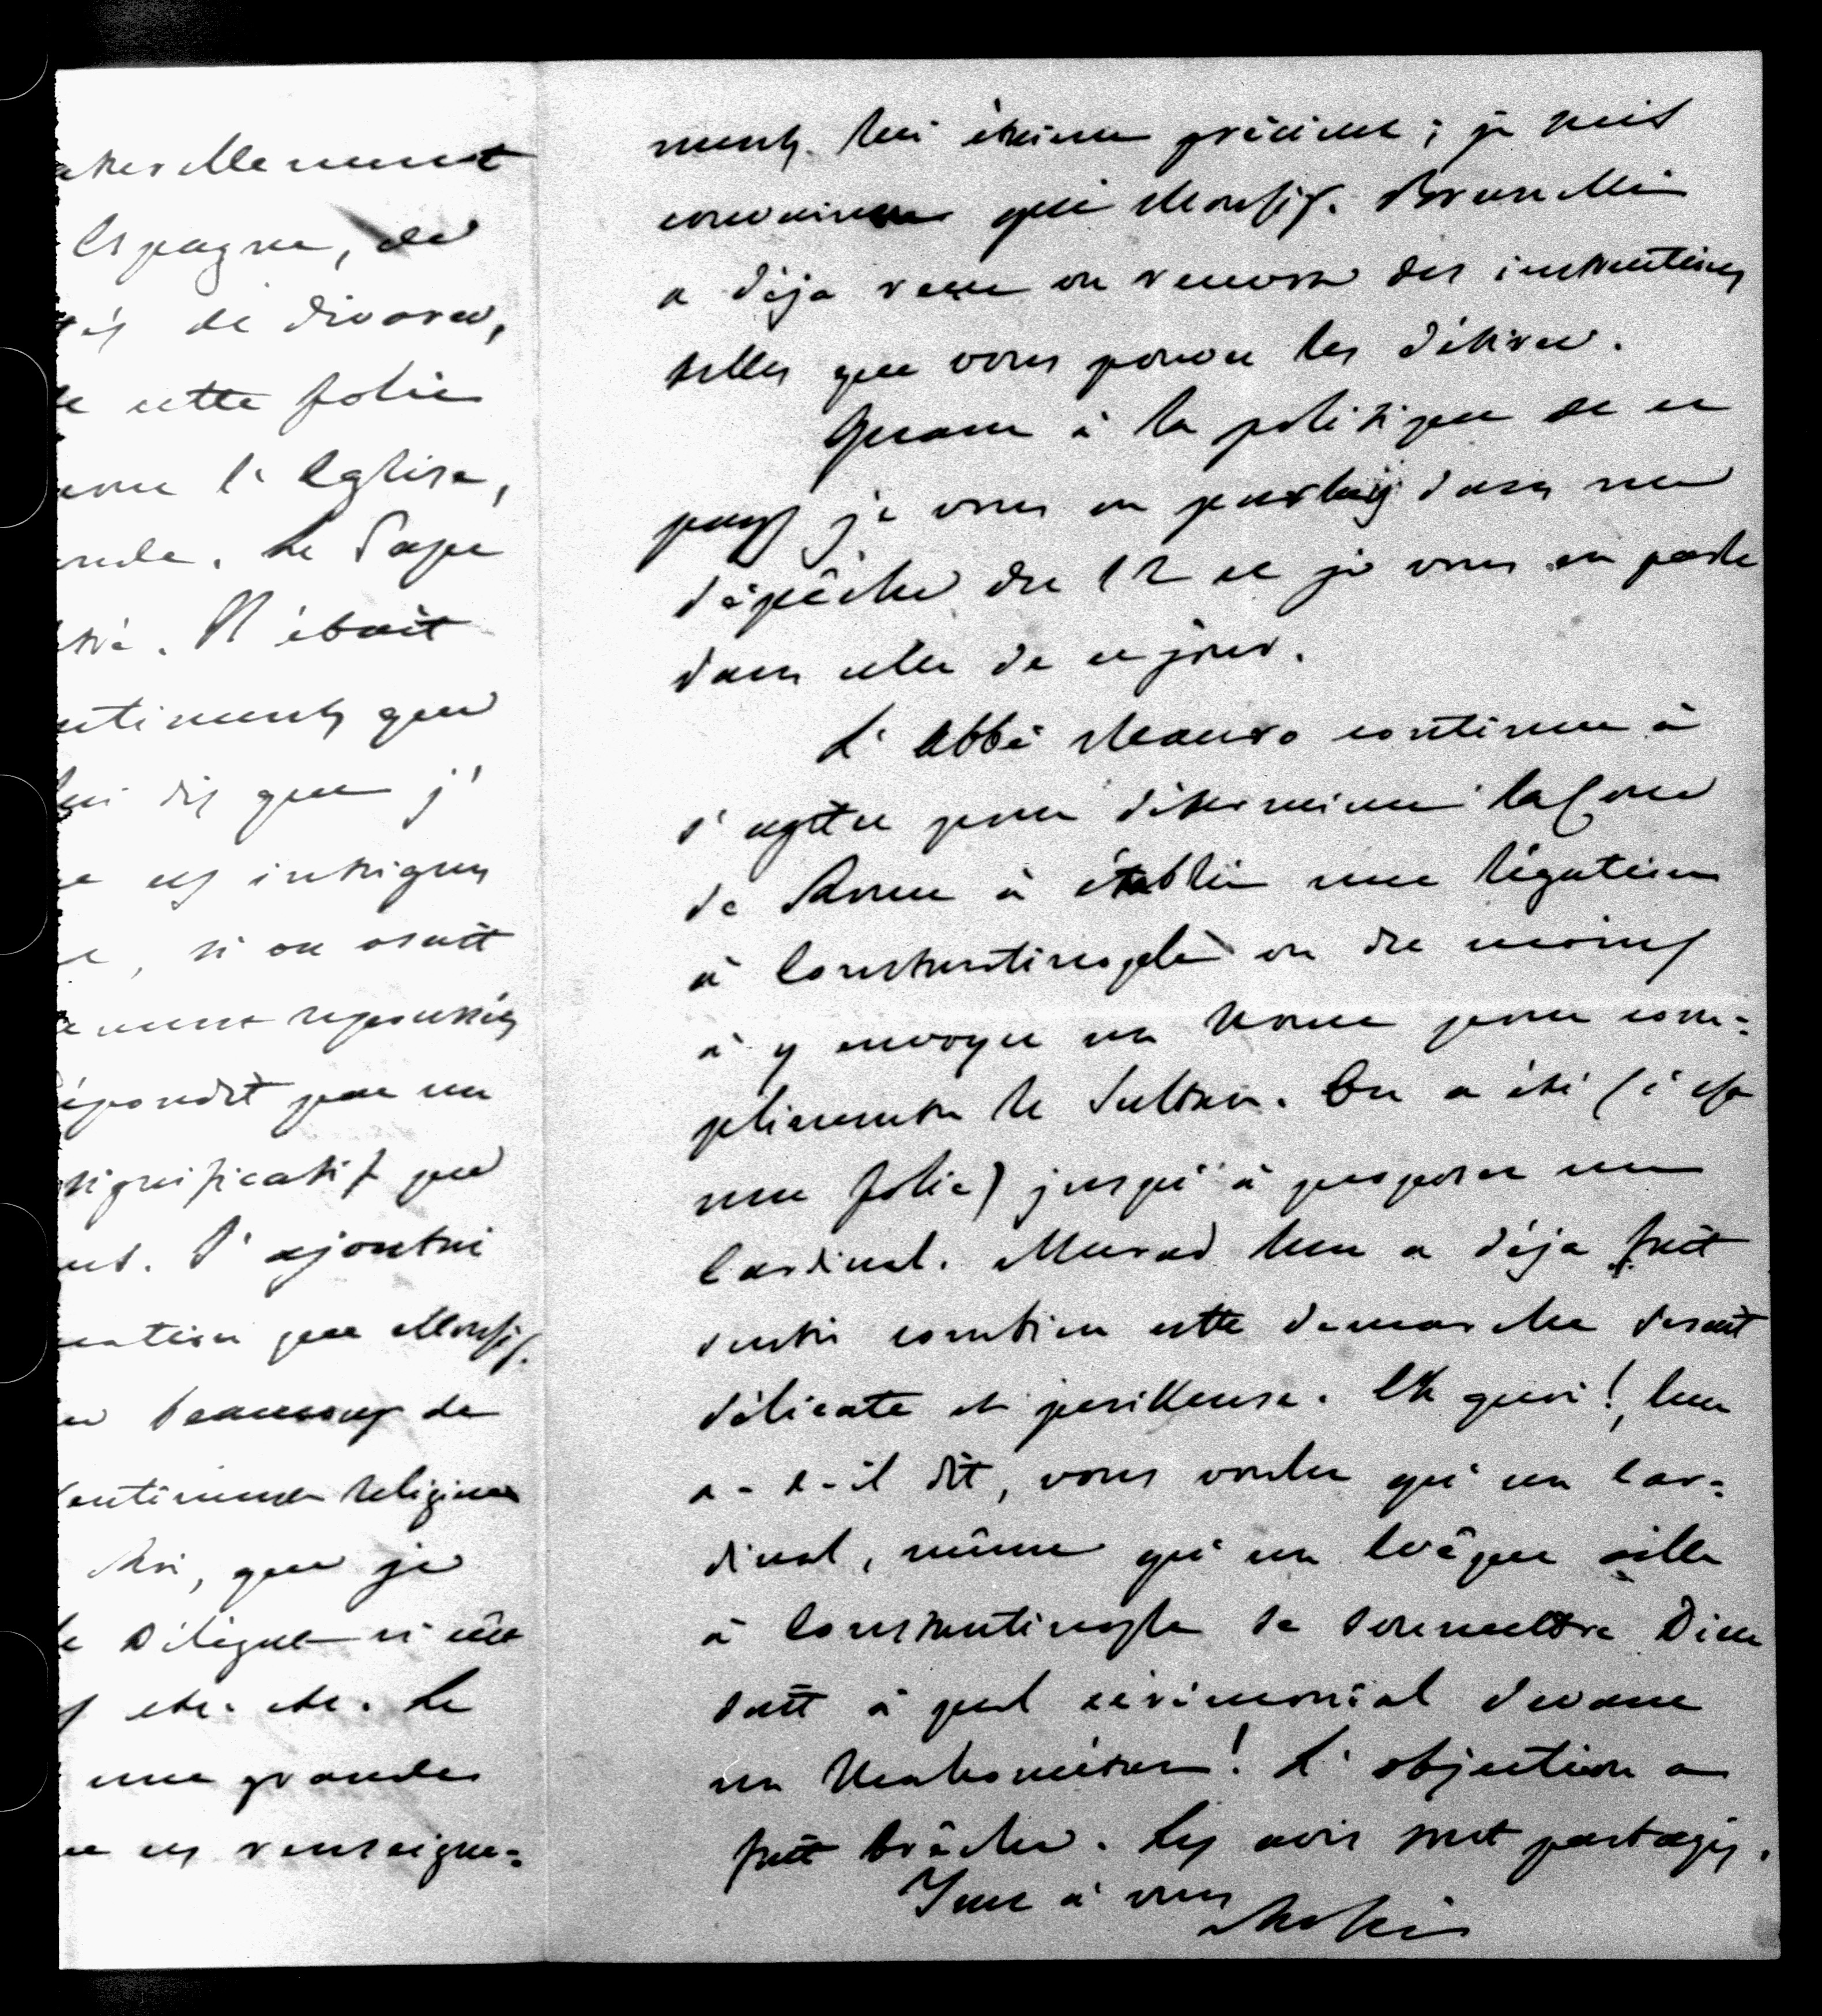 akes elle ment
Espagne, de
tés de divorce,
de cette folie
avec l'Eglise,
onde. Le Pape
tré. Il était
ntiments que
lui dis que j'
ces intrigues
, si on osait
ment repoussées
épondit par un
significatif que
J'ajoutai
cation que Monsig.
beaucoup de
sentiments religieux
Roi, que je
le Délégué
etc. etc. Le
une grande
ces renseigne=
ments lui étaient précieux ; je suis
convaincu que Monsig. Brunelli
a déja reçu ou recevra des instructions
telles que vous pouvez les désirer.
Quant à la politique de ce
pays je vous en parlais dans ma
dépêche du 12 et je vous en parle
dans celle de ce jour.
L'Abbé Mauro continue à
s'agiter pour déterminer la Cour
de Rome à établir une légation
à Constantinople ou du moins
à y envoyer un Nonce pour com=
plimenter le Sultan. On a été (c'est
une folie) jusqu'à proposer un
Cardinal. Murad leur a déja fait
sentir combien cette demarche serait
délicate et perilleuse. Eh quoi !, leur
a-t-il dit, vous voulez qu'un Car=
dinal, même qu'un Evêque aille
à Constantinople se soumettre Dieu
sait à quel cérémonial devant
un Mahométan ! L'objection a
fait brêche. Les avis sont partagés.
Tout à vous